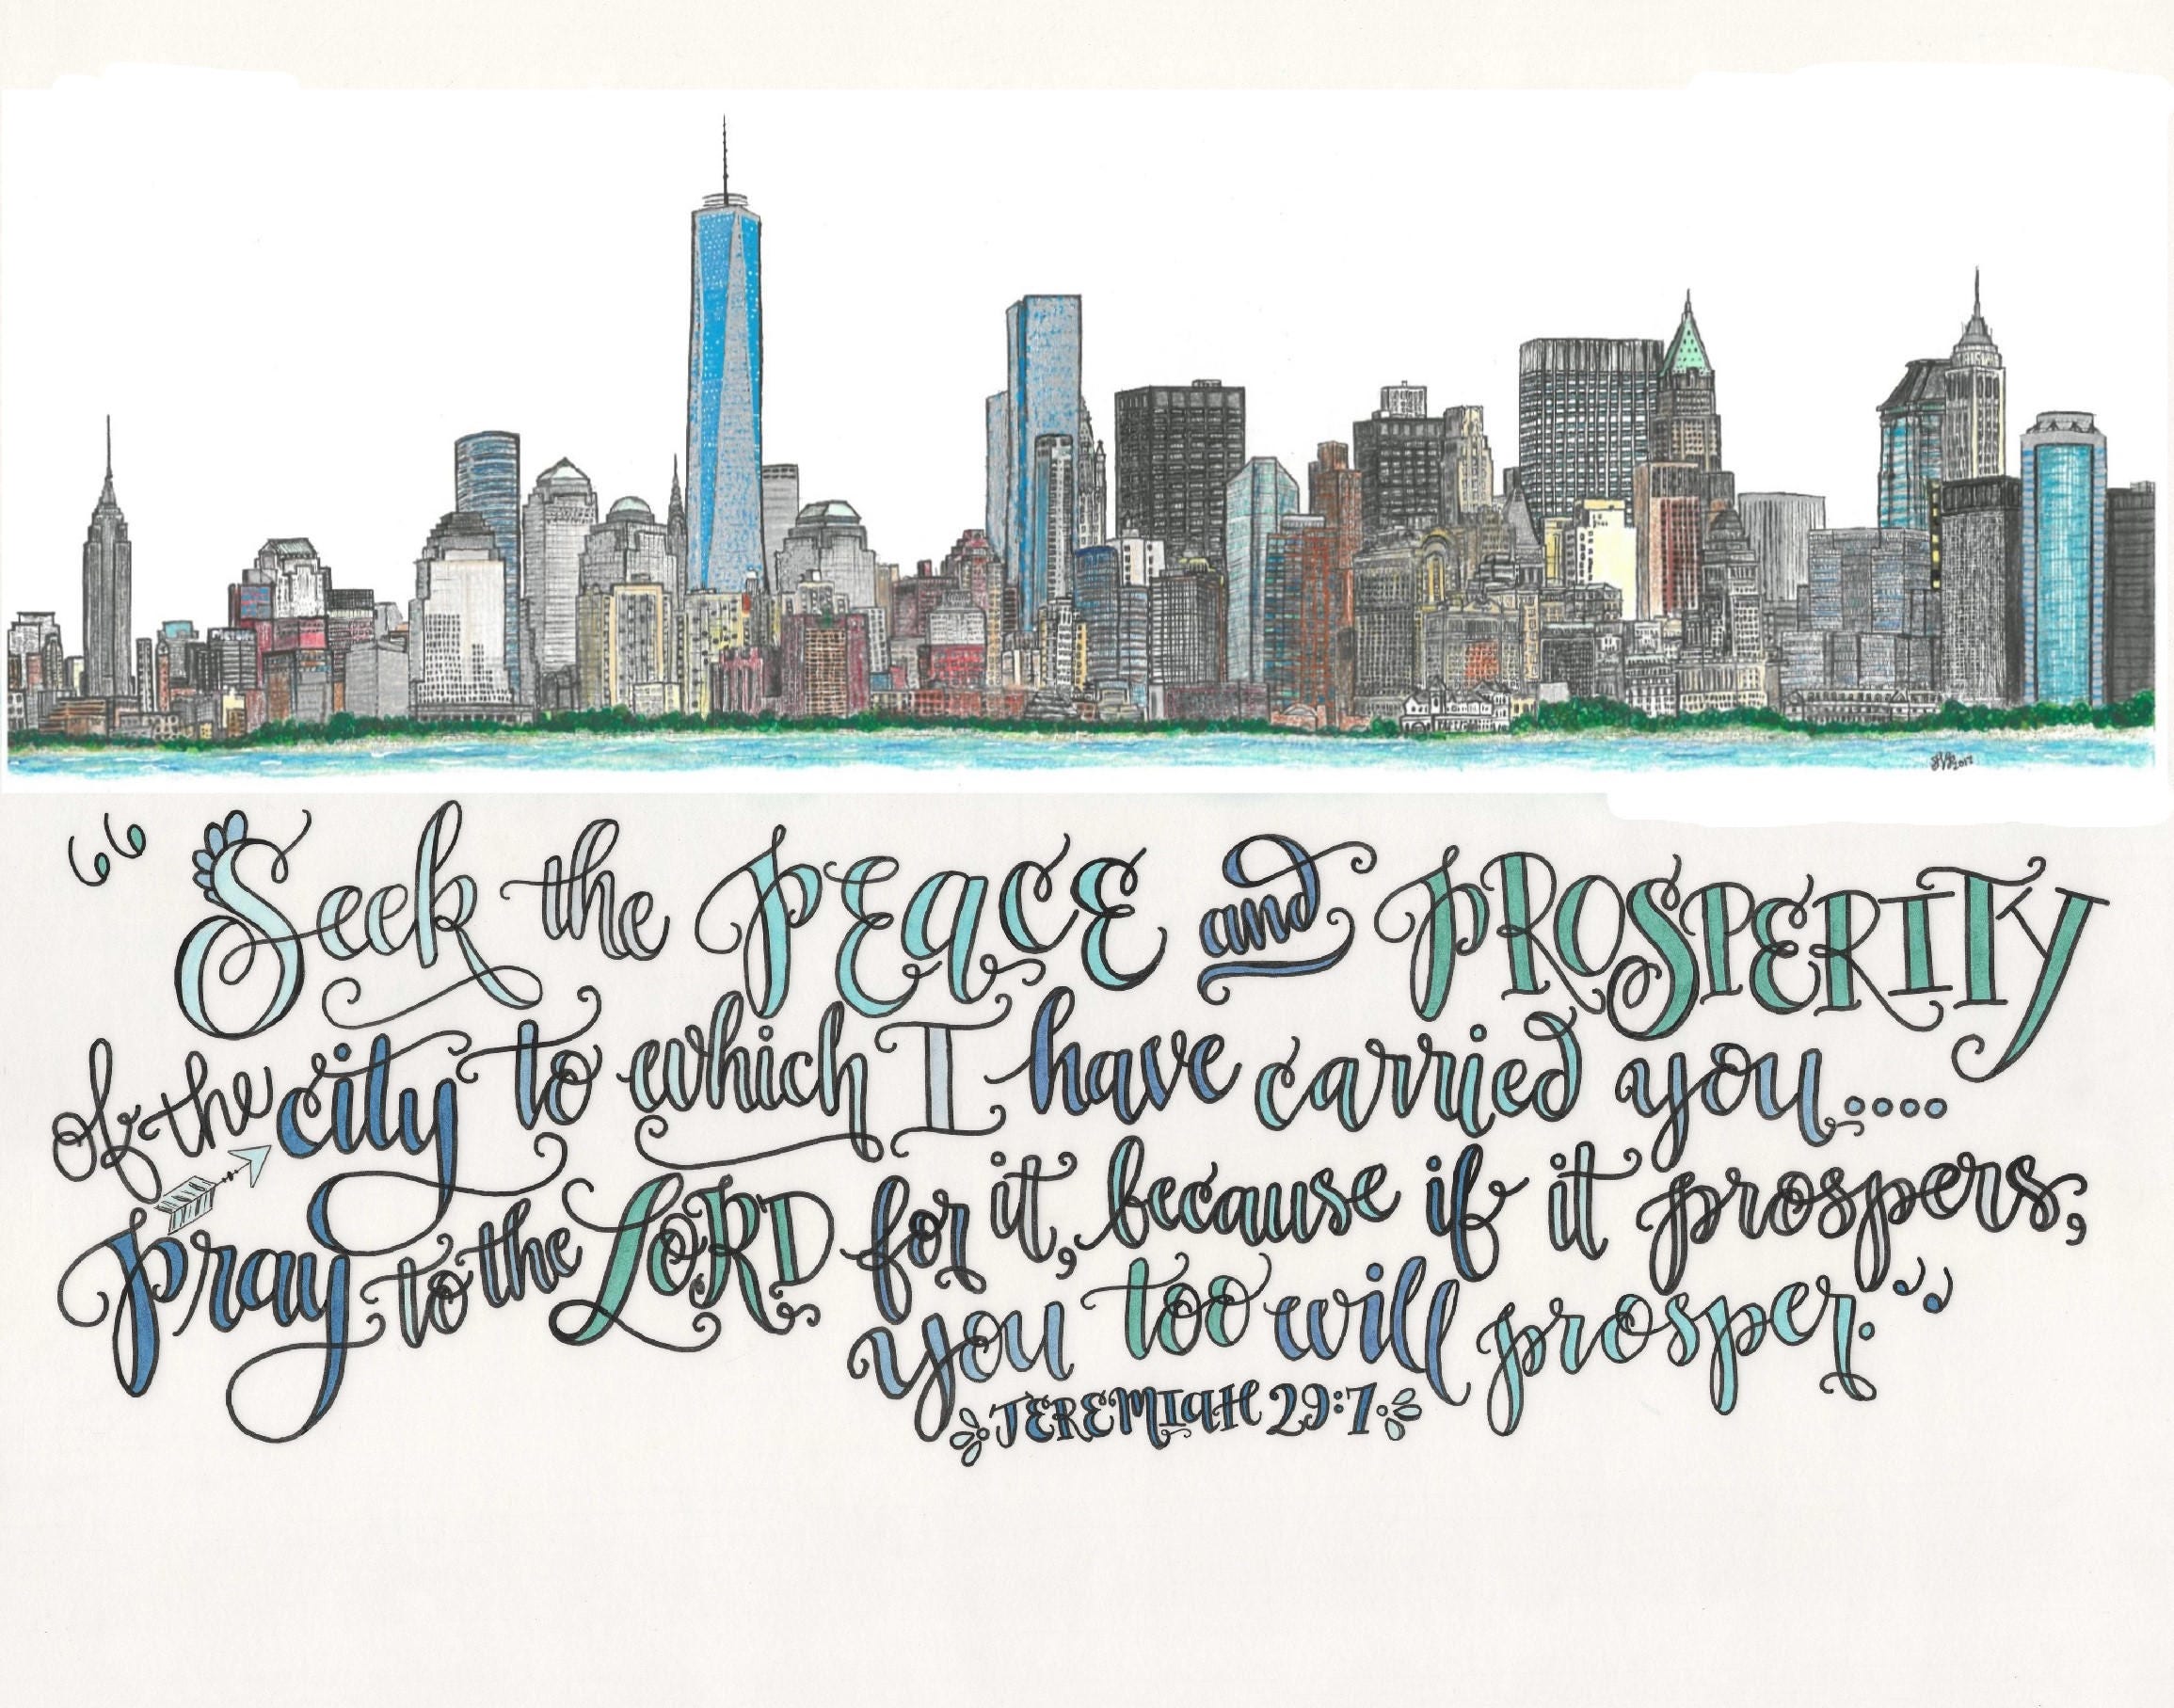 2017
“Seek the PEACE and PROSPERITY
of the city to which I have carried you....
pray to the LORD for it, because if it prospers,
you too will prosper.”
JEREMIAH 29:7